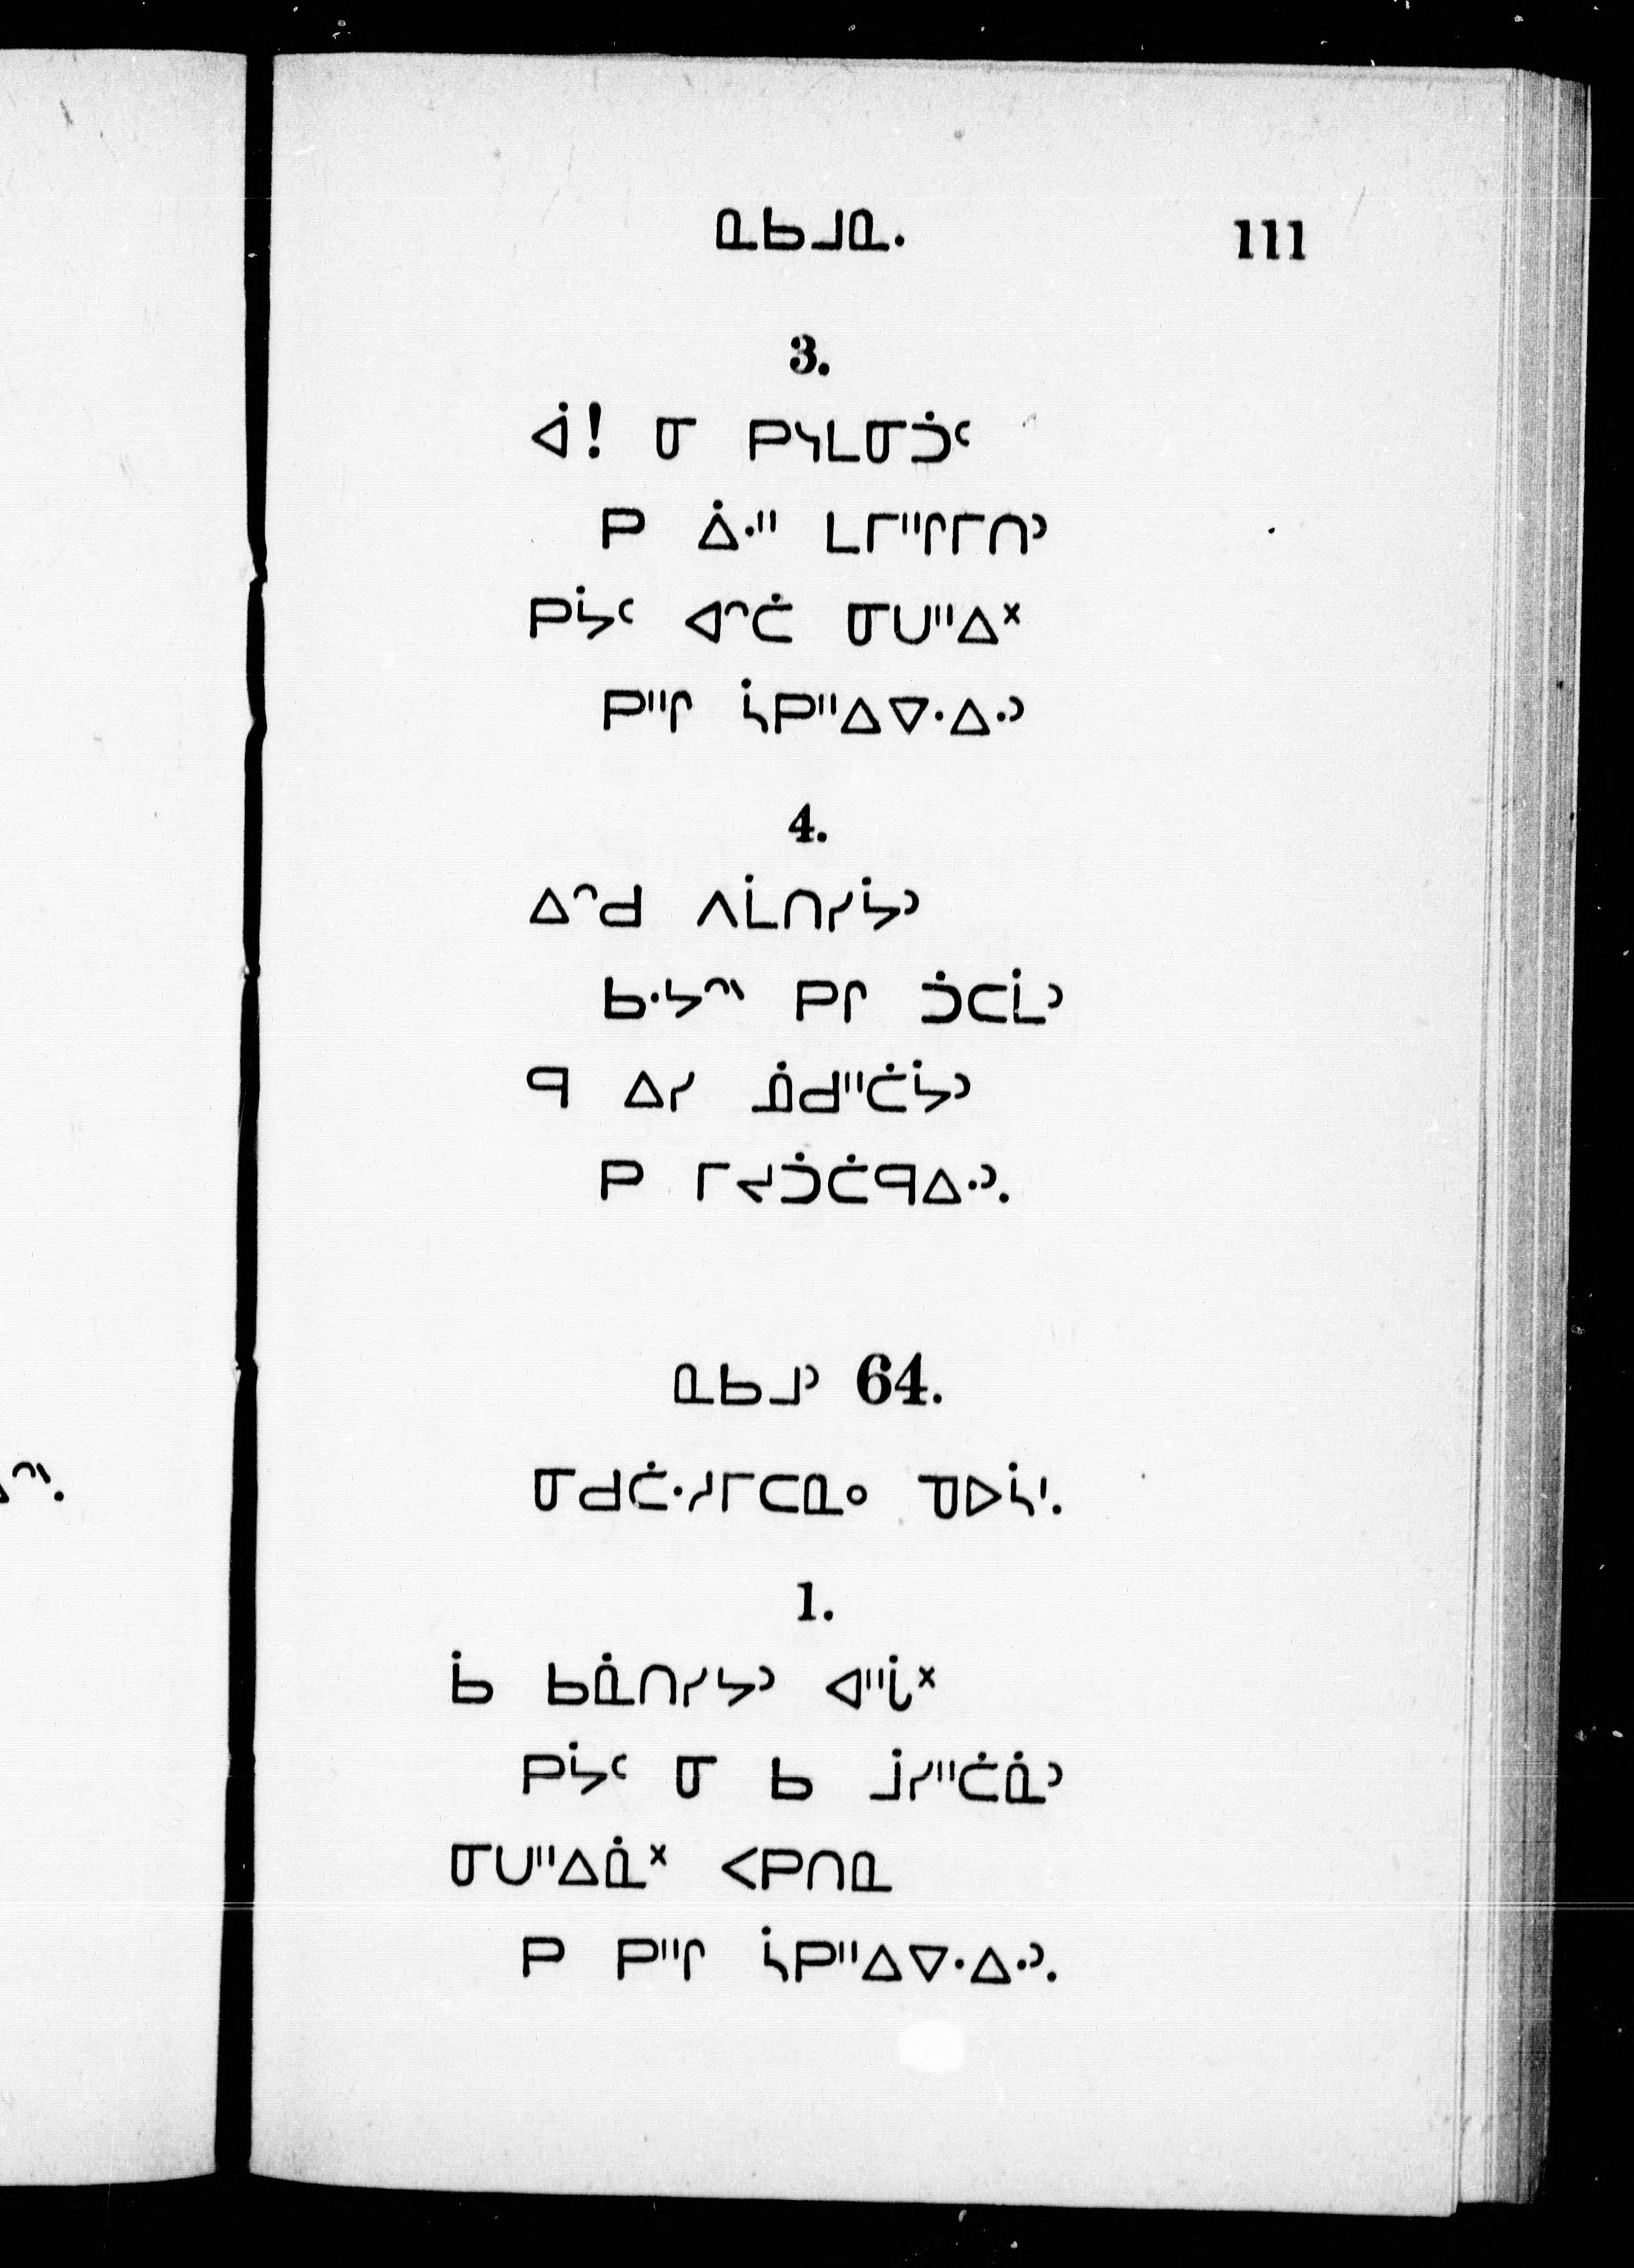 ᓇᑲᒧᓇ. 111
3.
ᐋ! ᓂ ᑭᓴᒪᓂᑑᑦ
ᑭ ᐄᐧᐦ ᒪᒥᐦᒋᒥᑎᐣ
ᑭᔮᑦ ᐊᐢᑖ ᓂᑌᐦᐃᕽ
ᑭᐦᒋ ᓵᑭᐦᐃᐁᐧᐃᐧᐣ
4.
ᐃᐢᑯ ᐱᒫᑎᓯᔮᐣ
ᑲᐧᔭᐢᐠ ᑭᒋ ᑑᑕᒫᐣ
ᑫ ᐃᓯ ᓅᑯᐦᑖᔮᐣ
ᑭ ᒥᔪᑑᑖᑫᐃᐧᐣ.
ᓇᑲᒧᐣ 64.
ᓂᑯᑖᐧᓱᒥᑕᓇᐤ ᓀᐅᓵᑊ.
1.
ᑳ ᑲᓈᑎᓯᔭᐣ ᐊᐦᒑᕽ
ᑭᔮᑦ ᓂ ᑲ ᒨᓯᐦᑖᓈᐣ
ᓂᑌᐦᐃᓈᕽ ᐸᑭᑎᓇ
ᑭ ᑭᐦᒋ ᓵᑭᐦᐃᐁᐧᐃᐧᐣ.